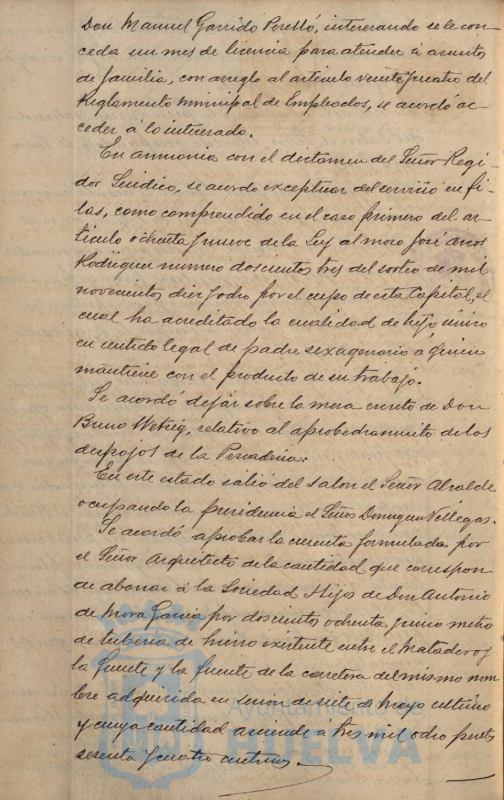 Don Manuel Garrido Perelló, interesando se le con-
ceda un mes de licencia para atender á asuntos
de familia, con arreglo al articulo veinte y cuatro del
Reglamento municipal de Empleados, se acordó ac-
ceder á lo interesado.
En armonia con el dictamen del Señor Regi-
dor Sindico, se acordo exceptuar del servicio en fi-
las, como comprendido en el caso primero del ar-
ticulo ochenta y nueve de la Ley al mozo José Arcos
Rodriguez numero doscientos tres del sorteo de mil
novecientos diez y ocho por el cupo de esta Capital, el
cual ha acreditado la cualidad de hijo único
en sentido legal de padre sexagenario á quien
mantiene con el producto de su trabajo.
Se acordó dejar sobre la mesa escrito de Don
Bruno relativo al aprobechamiento de los
despojos de la Pescaderia.
En este estado salió del salon el Señor Alcalde
ocupando la presidencia el Señor Dominguez Villegas.
Se acordó aprobar la cuenta formulada por
el Señor Arquitecto de la cantidad que correspon-
de abonar á la Sociedad Hijos de Don Antonio
de Mora Garcia por doscientos ochenta y cinco metros
de tuberia de hierro existente entre el Matadero y
la fuente y la fuente de la carretera del mismo nom-
bre adquirida en sesion de siete de Mayo último
y cuya cantidad asciende á tres mil ocho pesetas
sesenta y cuatro centimos.
Ayuntamiento de
HUELVA